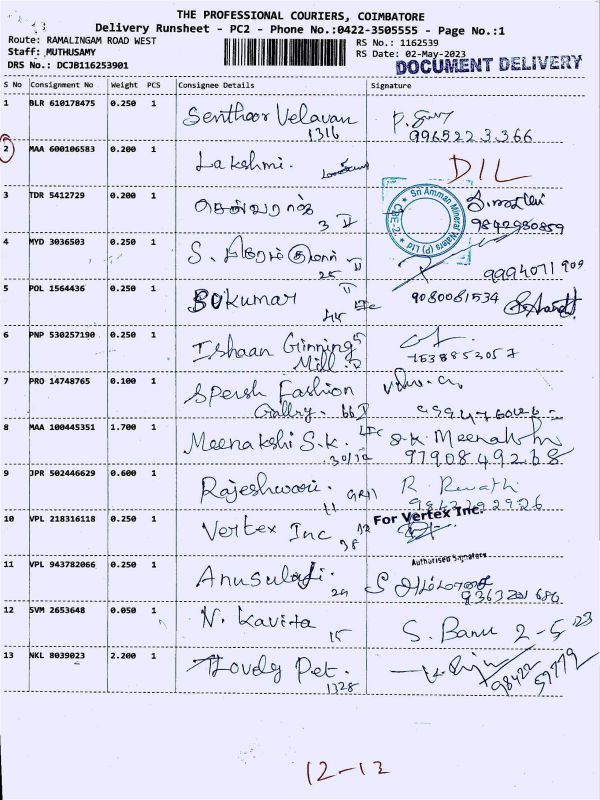 THE PROFESSIONAL COURIERS, COIMBATORE
Delivery Runsheet - PC2 - Phone No.:0422-3505555 - Page No.:1
Route: RAMALINGAM ROAD WEST
Staff: MUTHUSAMY
DRS No.: DCJB116253901
RS No.: 1162539
RS Date: 02-May-2023
DOCUMENT DELIVERY
S No Consignment No Weight PCS Consignee Details Signature
1 BLR 610178475 0.250 1 Senthoor Velavan
1316
9965223366
2 MAA 600106583 0.200 1 Lakshmi. DIL
3 TDR 5412729 0.200 1
3 II
9842980859
Sri Amman Mineral Waters (P) Ltd
CBE-2
4 MYD 3036503 0.250 1 S.
25 II
9994071909
5 POL 1564436 0.250 1 Sukumar
9080081534
6 PNP 530257190 0.250 1 Ishaan Ginning
Mill.
7 PRO 14748765 0.100 1 Spersh Fashion
Gallry. 66
8 MAA 100445351 1.700 1 Meenakshi S.K. S.K. Meenakshi
9790849268
9 JPR 502446629 0.600 1 Rajeshwari. R. Revathi
11
10 VPL 218316118 0.250 1 Vertex Inc For Vertex Inc.
98
Authorised Signatory
11 VPL 943782066 0.250 1
29
12 SVM 2653648 0.050 1 N. Kavita S. Banu 2-5-23
15
13 NKL 8039023 2.200 1 Lovely Pet.
1328
98422 59779
12-12